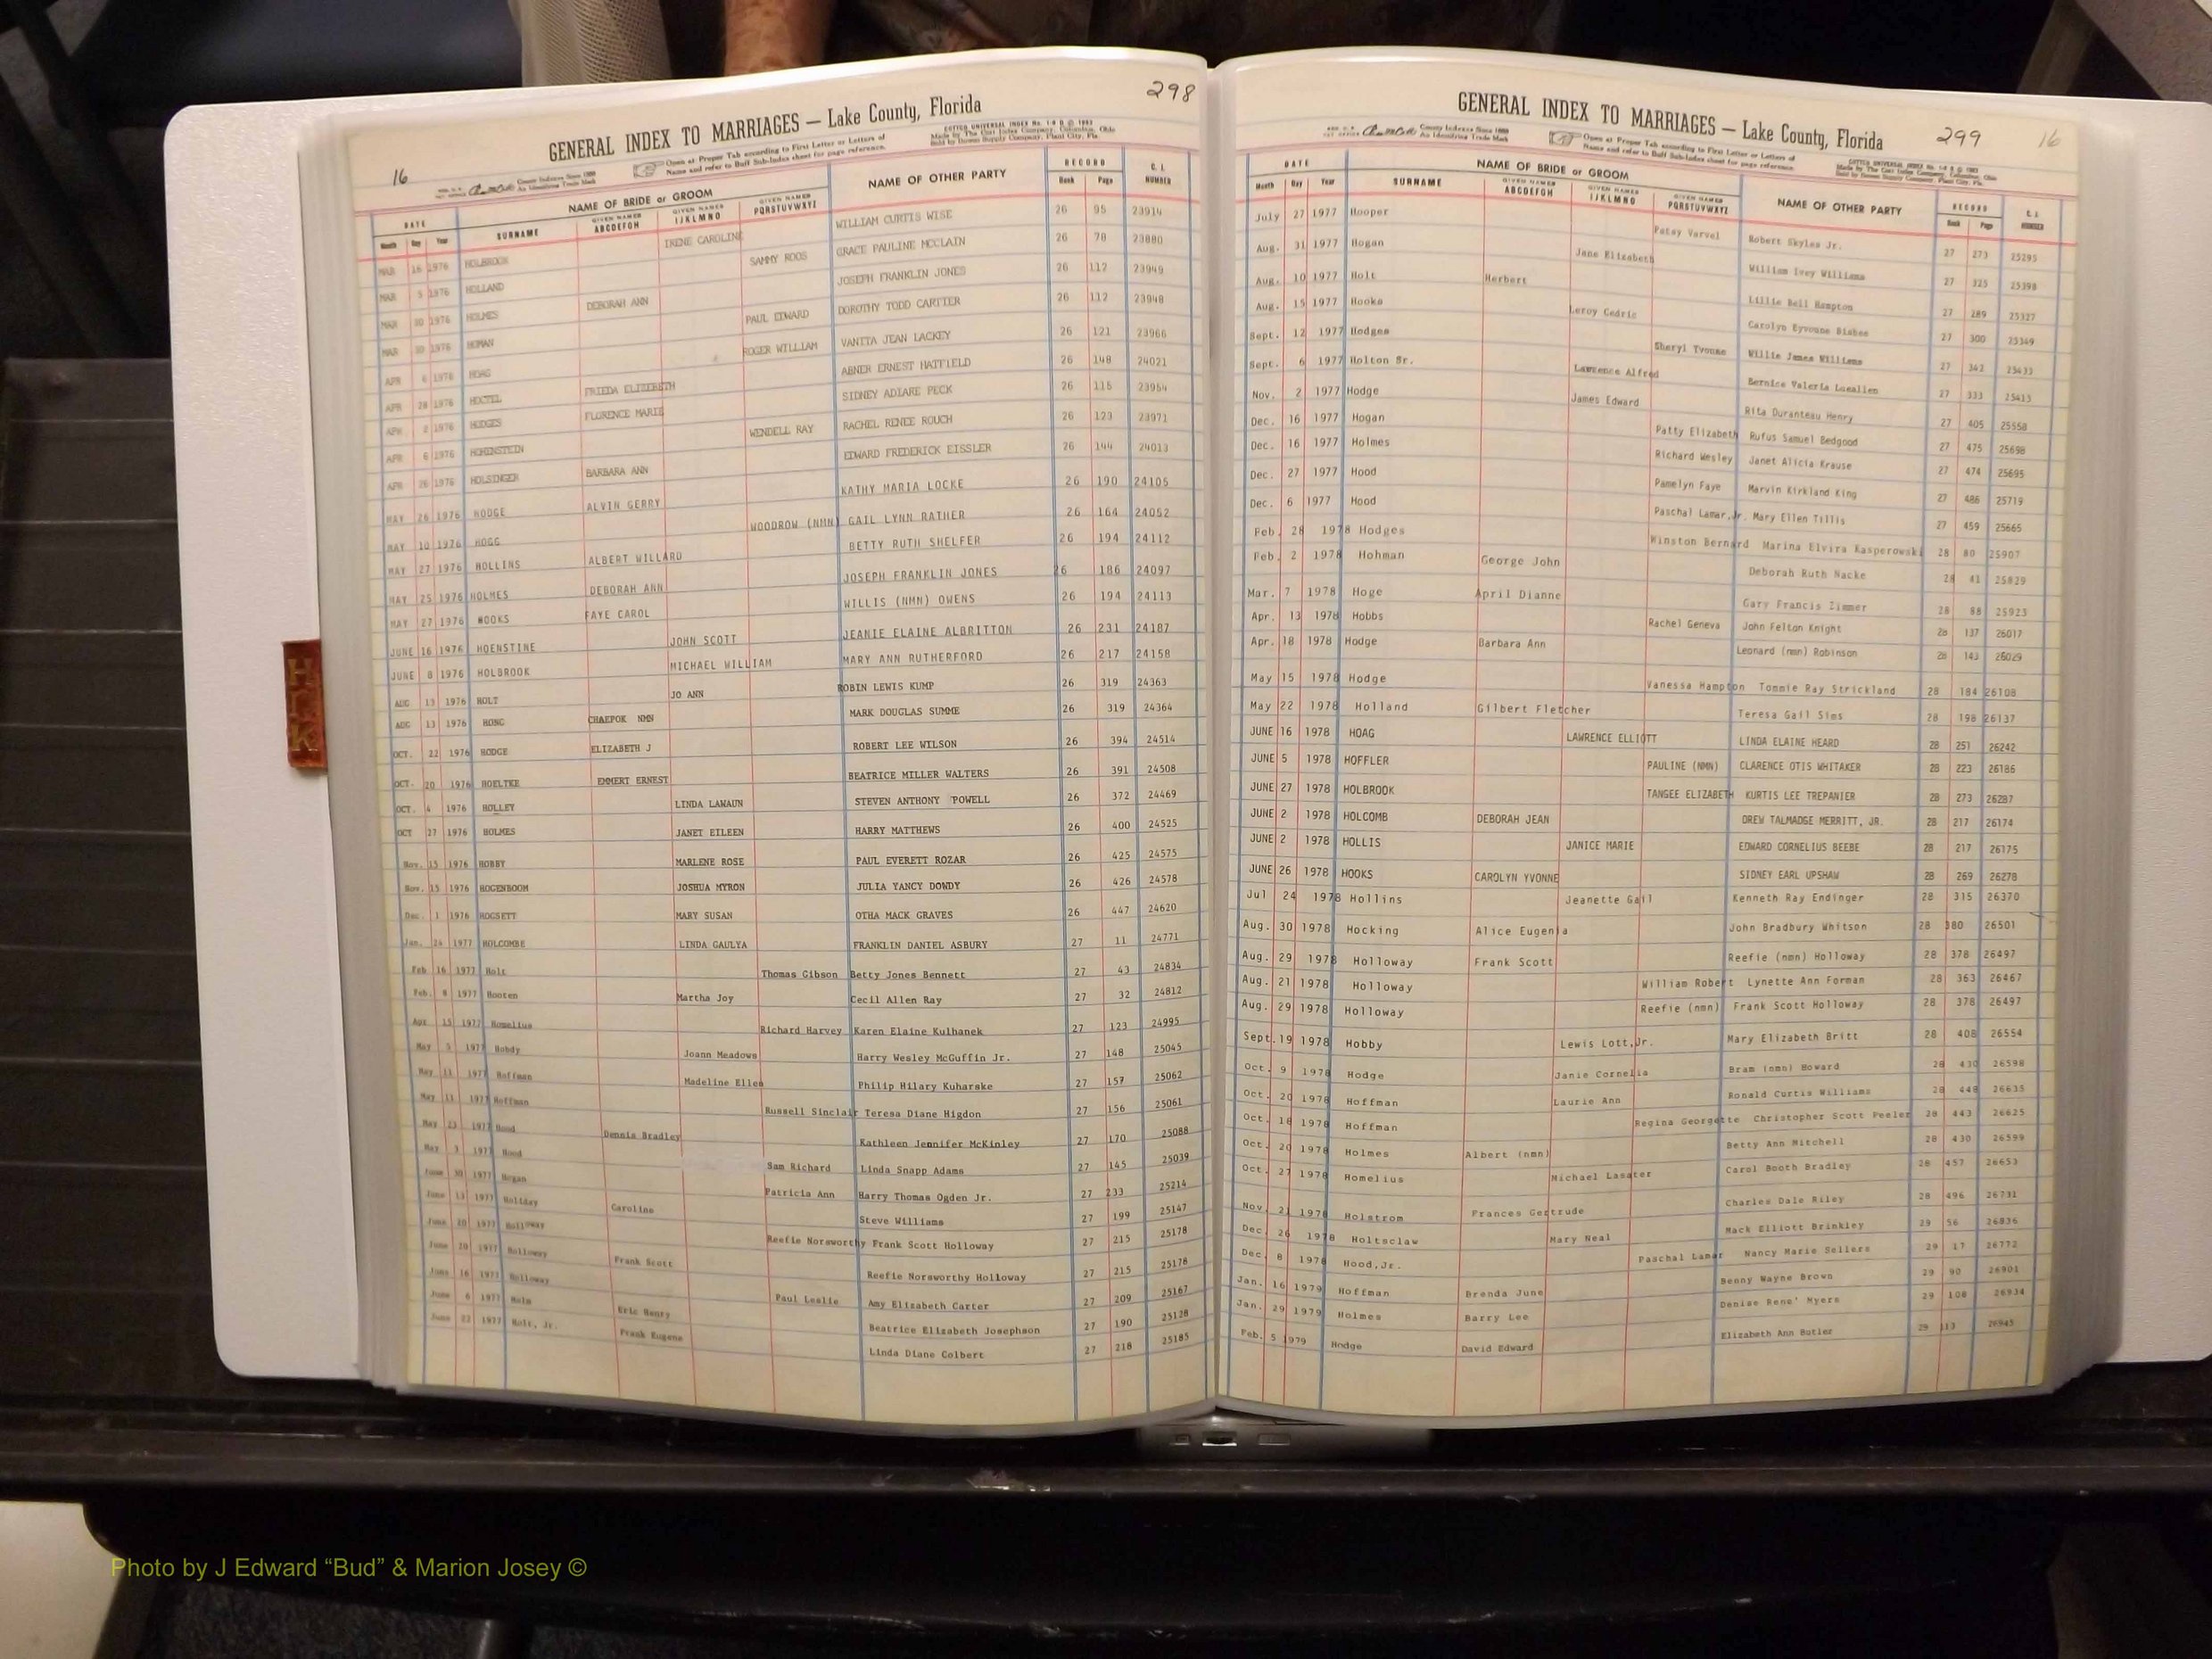 298
GENERAL INDEX TO MARRIAGES — Lake County, Florida
16
Open at Proper Tab according to First Letter or Letters of
Name and refer to Buff Sub-Index sheet for page reference.
DATE NAME OF BRIDE or GROOM NAME OF OTHER PARTY RECORD C. I.
Month Day Year SURNAME GIVEN NAMES ABCDEFGH GIVEN NAMES IJKLMNO GIVEN NAMES PQRSTUVWXYZ Book Page NUMBER
MAR 16 1976 HOLBROOK IRENE CAROLINE WILLIAM CURTIS WISE 26 95 23914
MAR 5 1976 HOLLAND SAMMY ROOS GRACE PAULINE MCCLAIN 26 78 23880
MAR 30 1976 HOLMES DEBORAH ANN JOSEPH FRANKLIN JONES 26 112 23949
MAR 30 1976 HOMAN PAUL EDWARD DOROTHY TODD CARTTER 26 112 23948
APR 6 1976 HOAG ROGER WILLIAM VANITA JEAN LACKEY 26 121 23966
APR 28 1976 HOCTEL FRIEDA ELIZEBETH ABNER ERNEST HATFIELD 26 148 24021
APR 2 1976 HODGES FLORENCE MARIE SIDNEY ADIARE PECK 26 115 23954
APR 6 1976 HOHENSTEIN WENDELL RAY RACHEL RENEE ROUCH 26 123 23971
APR 26 1976 HOLSINGER BARBARA ANN EDWARD FREDERICK EISSLER 26 144 24013
MAY 26 1976 HODGE ALVIN GERRY KATHY MARIA LOCKE 26 190 24105
MAY 10 1976 HOGG WOODROW (NMN) GAIL LYNN RATHER 26 164 24052
MAY 27 1976 HOLLINS ALBERT WILLARD BETTY RUTH SHELFER 26 194 24112
MAY 25 1976 HOLMES DEBORAH ANN JOSEPH FRANKLIN JONES 26 186 24097
MAY 27 1976 HOOKS FAYE CAROL WILLIS (NMN) OWENS 26 194 24113
JUNE 16 1976 HOENSTINE JOHN SCOTT JEANIE ELAINE ALBRITTON 26 231 24187
JUNE 8 1976 HOLBROOK MICHAEL WILLIAM MARY ANN RUTHERFORD 26 217 24158
AUG 13 1976 HOLT JO ANN ROBIN LEWIS KUMP 26 319 24363
AUG 13 1976 HONG CHAEPOK NMN MARK DOUGLAS SUMME 26 319 24364
OCT. 22 1976 HODGE ELIZABETH J ROBERT LEE WILSON 26 394 24514
OCT. 20 1976 HOELTKE EMMERT ERNEST BEATRICE MILLER WALTERS 26 391 24508
OCT. 4 1976 HOLLEY LINDA LAWAUN STEVEN ANTHONY POWELL 26 372 24469
OCT 27 1976 HOLMES JANET EILEEN HARRY MATTHEWS 26 400 24525
Nov. 15 1976 HOBBY MARLENE ROSE PAUL EVERETT ROZAR 26 425 24575
Nov. 15 1976 HOGENBOOM JOSHUA MYRON JULIA YANCY DOWDY 26 426 24578
Dec. 1 1976 HOGSETT MARY SUSAN OTHA MACK GRAVES 26 447 24620
Jan. 24 1977 HOLCOMBE LINDA GAULYA FRANKLIN DANIEL ASBURY 27 11 24771
Feb 16 1977 Holt Thomas Gibson Betty Jones Bennett 27 43 24834
Feb. 8 1977 Hooten Martha Joy Cecil Allen Ray 27 32 24812
Apr 15 1977 Homelius Richard Harvey Karen Elaine Kulhanek 27 123 24995
May 5 1977 Hobdy Joann Meadows Harry Wesley McGuffin Jr. 27 148 25045
May 11 1977 Hoffman Madeline Ellen Philip Hilary Kuharske 27 157 25062
May 11 1977 Hoffman Russell Sinclair Teresa Diane Higdon 27 156 25061
May 23 1977 Hood Dennis Bradley Kathleen Jennifer McKinley 27 170 25088
May 3 1977 Hood Sam Richard Linda Snapp Adams 27 145 25039
June 30 1977 Hogan Patricia Ann Harry Thomas Ogden Jr. 27 233 25214
June 13 1977 Holiday Caroline Steve Williams 27 199 25147
June 20 1977 Holloway Reefie Norsworthy Frank Scott Holloway 27 215 25178
June 20 1977 Holloway Frank Scott Reefie Norsworthy Holloway 27 215 25178
June 16 1977 Holloway Paul Leslie Amy Elizabeth Carter 27 209 25167
June 6 1977 Holm Eric Henry Beatrice Elizabeth Josephson 27 190 25128
June 22 1977 Holt, Jr. Frank Eugene Linda Diane Colbert 27 218 25185
GENERAL INDEX TO MARRIAGES — Lake County, Florida 299 16
Open at Proper Tab according to First Letter or Letters of
Name and refer to Buff Sub-Index sheet for page reference.
DATE NAME OF BRIDE or GROOM NAME OF OTHER PARTY RECORD C. I.
Month Day Year SURNAME GIVEN NAMES ABCDEFGH GIVEN NAMES IJKLMNO GIVEN NAMES PQRSTUVWXYZ Book Page NUMBER
July 27 1977 Hooper Patsy Varvel Robert Skyles Jr. 27 273 25295
Aug. 31 1977 Hogan Jane Elizabeth William Ivey Williams 27 325 25398
Aug. 10 1977 Holt Herbert Lillie Bell Hampton 27 289 25327
Aug. 15 1977 Hooks Leroy Cedric Carolyn Eyvoune Bisbee 27 300 25349
Sept. 12 1977 Hodges Sheryl Yvonne Willie James Williams 27 342 25433
Sept. 6 1977 Holton Sr. Lawrence Alfred Bernice Valeria Luealien 27 333 25413
Nov. 2 1977 Hodge James Edward Rita Duranteau Henry 27 405 25558
Dec. 16 1977 Hogan Patty Elizabeth Rufus Samuel Bedgood 27 475 25698
Dec. 16 1977 Holmes Richard Wesley Janet Alicia Krause 27 474 25695
Dec. 27 1977 Hood Pamelyn Faye Marvin Kirkland King 27 486 25719
Dec. 6 1977 Hood Paschal Lamar,Jr. Mary Ellen Tillis 27 459 25665
Feb. 28 1978 Hodges Winston Bernard Marina Elvira Kasperowski 28 80 25907
Feb. 2 1978 Hohman George John Deborah Ruth Nacke 28 41 25829
Mar. 7 1978 Hoge April Dianne Gary Francis Zimmer 28 88 25923
Apr. 13 1978 Hobbs Rachel Geneva John Felton Knight 28 137 26017
Apr. 18 1978 Hodge Barbara Ann Leonard (nmn) Robinson 28 143 26029
May 15 1978 Hodge Vanessa Hampton Tommie Ray Strickland 28 184 26108
May 22 1978 Holland Gilbert Fletcher Teresa Gail Sims 28 198 26137
JUNE 16 1978 HOAG LAWRENCE ELLIOTT LINDA ELAINE HEARD 28 251 26242
JUNE 5 1978 HOFFLER PAULINE (NMN) CLARENCE OTIS WHITAKER 28 223 26186
JUNE 27 1978 HOLBROOK TANGEE ELIZABETH KURTIS LEE TREPANIER 28 273 26287
JUNE 2 1978 HOLCOMB DEBORAH JEAN DREW TALMADGE MERRITT, JR. 28 217 26174
JUNE 2 1978 HOLLIS JANICE MARIE EDWARD CORNELIUS BEEBE 28 217 26175
JUNE 26 1978 HOOKS CAROLYN YVONNE SIDNEY EARL UPSHAW 28 269 26278
Jul 24 1978 Hollins Jeanette Gail Kenneth Ray Endinger 28 315 26370
Aug. 30 1978 Hocking Alice Eugenia John Bradbury Whitson 28 380 26501
Aug. 29 1978 Holloway Frank Scott Reefie (nmn) Holloway 28 378 26497
Aug. 21 1978 Holloway William Robert Lynette Ann Forman 28 363 26467
Aug. 29 1978 Holloway Reefie (nmn) Frank Scott Holloway 28 378 26497
Sept. 19 1978 Hobby Lewis Lott,Jr. Mary Elizabeth Britt 28 408 26554
Oct. 9 1978 Hodge Janie Cornelia Bram (nmn) Howard 28 430 26598
Oct. 20 1978 Hoffman Laurie Ann Ronald Curtis Williams 28 448 26635
Oct. 18 1978 Hoffman Regina Georgette Christopher Scott Peeler 28 443 26625
Oct. 20 1978 Holmes Albert (nmn) Betty Ann Mitchell 28 430 26599
Oct. 27 1978 Homelius Michael Lasater Carol Booth Bradley 28 457 26653
Nov. 21 1978 Holstrom Frances Gertrude Charles Dale Riley 28 496 26731
Dec. 26 1978 Holtsclaw Mary Neal Mack Elliott Brinkley 29 56 26836
Dec. 8 1978 Hood,Jr. Paschal Lamar Nancy Marie Sellers 29 17 26772
Jan. 16 1979 Hoffman Brenda June Benny Wayne Brown 29 90 26901
Jan. 29 1979 Holmes Barry Lee Denise Rene' Myers 29 108 26934
Feb. 5 1979 Hodge David Edward Elizabeth Ann Butler 29 113 26945
H
K
Photo by J Edward “Bud” & Marion Josey ©